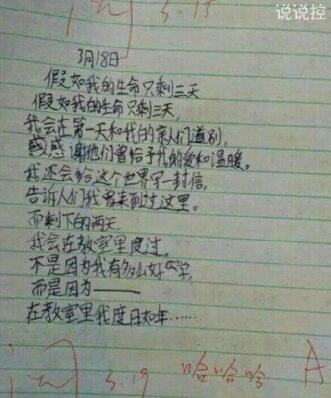 说说控
3.15
3月18日
假如我的生命只剩三天
假如我的生命只剩三天,
我会在第一天和我的亲人们道别,
感感谢他们曾给予我的爱和温暖。
我还会给这个世界写一封信,
告诉人们我曾来到过这里。
而剩下的两天
我会在教室里度过。
不是因为我有多么好学,
而是因为——
在教室里我度日如年……
3.19 哈哈哈 A